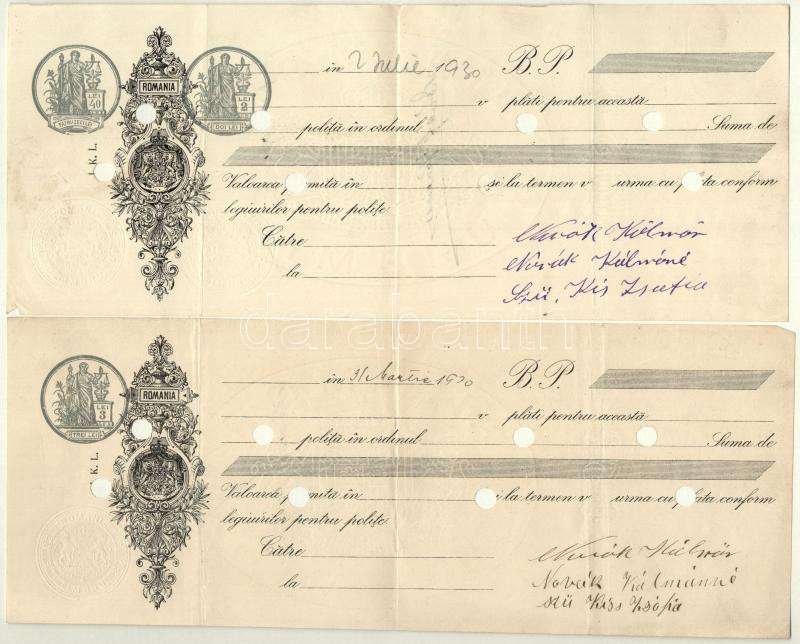 in 2 Iulie 1930 B. P.
ROMANIA
LEI 40
LEI 2
PATRUZECI LEI
DOI LEI
v plăti pentru această
poliță în ordinul Suma de
K. L.
Valoarea primită în și la termen v urma cu plata conform
legiuirilor pentru polițe.
Către
la
Novák Kálmán
Novák Kálmánné
Szü. Kis Zsófia
darabanth
in 31 Martie 1930 B. P.
ROMANIA
LEI 3
TREI LEI
v plăti pentru această
poliță în ordinul Suma de
K. L.
Valoarea primită în și la termen v urma cu plata conform
legiuirilor pentru polițe.
Către
la
Novák Kálmán
Novák Kálmánné
szü Kiss Zsófia